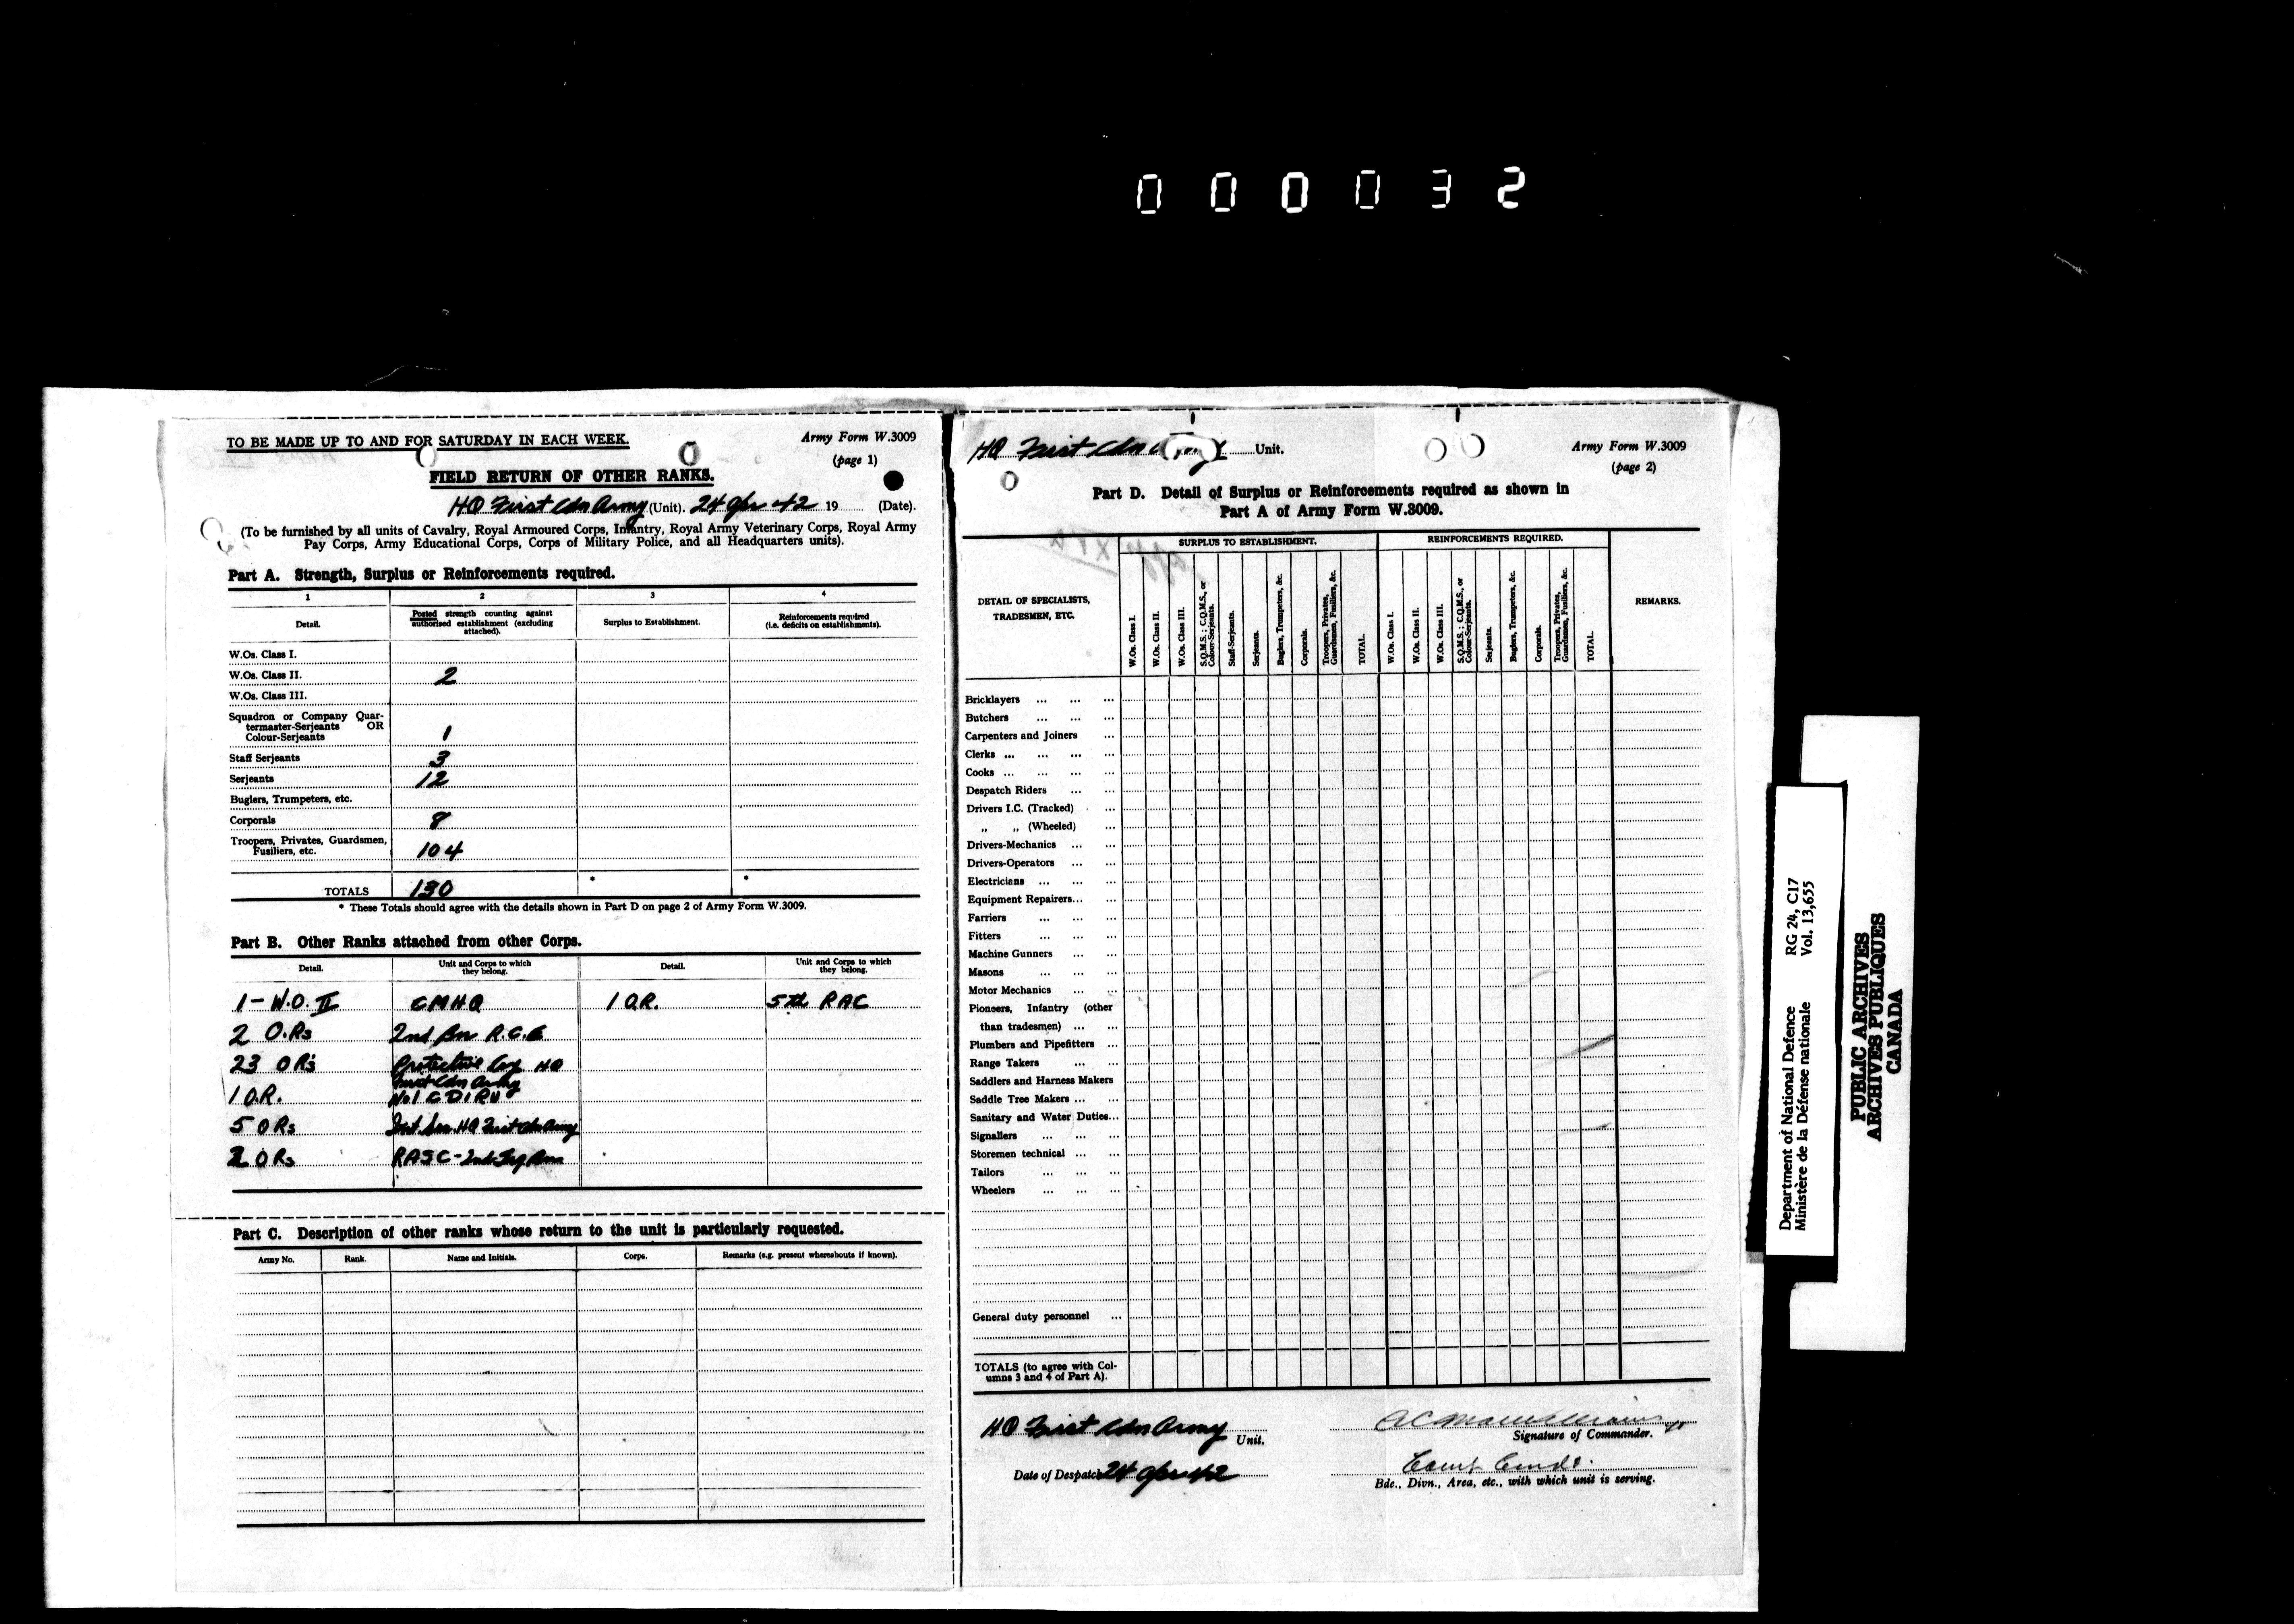 000032
TO BE MADE UP TO AND FOR SATURDAY IN EACH WEEK.
Army Form W.3009
(page 1)
FIELD RETURN OF OTHER RANKS.
HQ First Cdn Army (Unit). 24 Apr 42 19 (Date).
(To be furnished by all units of Cavalry, Royal Armoured Corps, Infantry, Royal Army Veterinary Corps, Royal Army
Pay Corps, Army Educational Corps, Corps of Military Police, and all Headquarters units).
Part A. Strength, Surplus or Reinforcements required.
1 2 3 4
Detail.
Posted strength counting against
authorised establishment (excluding
attached).
Surplus to Establishment.
Reinforcements required
(i.e. deficits on establishments).
W.Os. Class I.
W.Os. Class II. 2
W.Os. Class III.
Squadron or Company Quar-
termaster-Serjeants OR
Colour-Serjeants 1
Staff Serjeants 3
Serjeants 12
Buglers, Trumpeters, etc.
Corporals 8
Troopers, Privates, Guardsmen,
Fusiliers, etc. 104
TOTALS 130 * *
* These Totals should agree with the details shown in Part D on page 2 of Army Form W.3009.
Part B. Other Ranks attached from other Corps.
Detail.
Unit and Corps to which
they belong.
Detail.
Unit and Corps to which
they belong.
1 - W.O. II CMHQ 1 O.R. 5th RAC
2 O.Rs 2nd Bn R.C.E
23 ORs Protective Coy HQ
First Cdn Army
1 O.R. No 1 C D I R U
5 ORs Int. Sec. HQ First Cdn Army
2 ORs RASC -
Part C. Description of other ranks whose return to the unit is particularly requested.
Army No. Rank. Name and Initials. Corps. Remarks (e.g. present whereabouts if known).
HQ First Cdn Unit.
Army Form W.3009
(page 2)
Part D. Detail of Surplus or Reinforcements required as shown in
Part A of Army Form W.3009.
DETAIL OF SPECIALISTS,
TRADESMEN, ETC.
SURPLUS TO ESTABLISHMENT.
W.Os. Class I.
W.Os. Class II.
W.Os. Class III.
S.Q.M.S.; C.Q.M.S., or
Colour-Serjeants.
Staff-Serjeants.
Serjeants.
Buglers, Trumpeters, &c.
Corporals.
Troopers, Privates,
Guardsmen, Fusiliers, &c.
TOTAL.
REINFORCEMENTS REQUIRED.
W.Os. Class I.
W.Os. Class II.
W.Os. Class III.
S.Q.M.S.; C.Q.M.S., or
Colour-Serjeants.
Serjeants.
Buglers, Trumpeters, &c.
Corporals.
Troopers, Privates,
Guardsmen, Fusiliers, &c.
TOTAL.
REMARKS.
Bricklayers ... ... ...
Butchers ... ... ...
Carpenters and Joiners ...
Clerks ... ... ... ...
Cooks ... ... ... ...
Despatch Riders ... ...
Drivers I.C. (Tracked) ...
„ „ (Wheeled) ...
Drivers-Mechanics ... ...
Drivers-Operators ... ...
Electricians ... ... ...
Equipment Repairers... ...
Farriers ... ... ...
Fitters ... ... ...
Machine Gunners ... ...
Masons ... ... ...
Motor Mechanics ... ...
Pioneers, Infantry (other
than tradesmen) ... ...
Plumbers and Pipefitters ...
Range Takers ... ...
Saddlers and Harness Makers
Saddle Tree Makers ... ...
Sanitary and Water Duties...
Signallers ... ... ...
Storemen technical ... ...
Tailors ... ... ...
Wheelers ... ... ...
General duty personnel ...
TOTALS (to agree with Col-
umns 3 and 4 of Part A).
HQ First Cdn Army Unit.
Signature of Commander.
Date of Despatch 24 Apr 42
Camp Comdt.
Bde., Divn., Area, etc., with which unit is serving.
Department of National Defence RG 24, C17
Ministère de la Défense nationale Vol. 13,655
PUBLIC ARCHIVES
ARCHIVES PUBLIQUES
CANADA